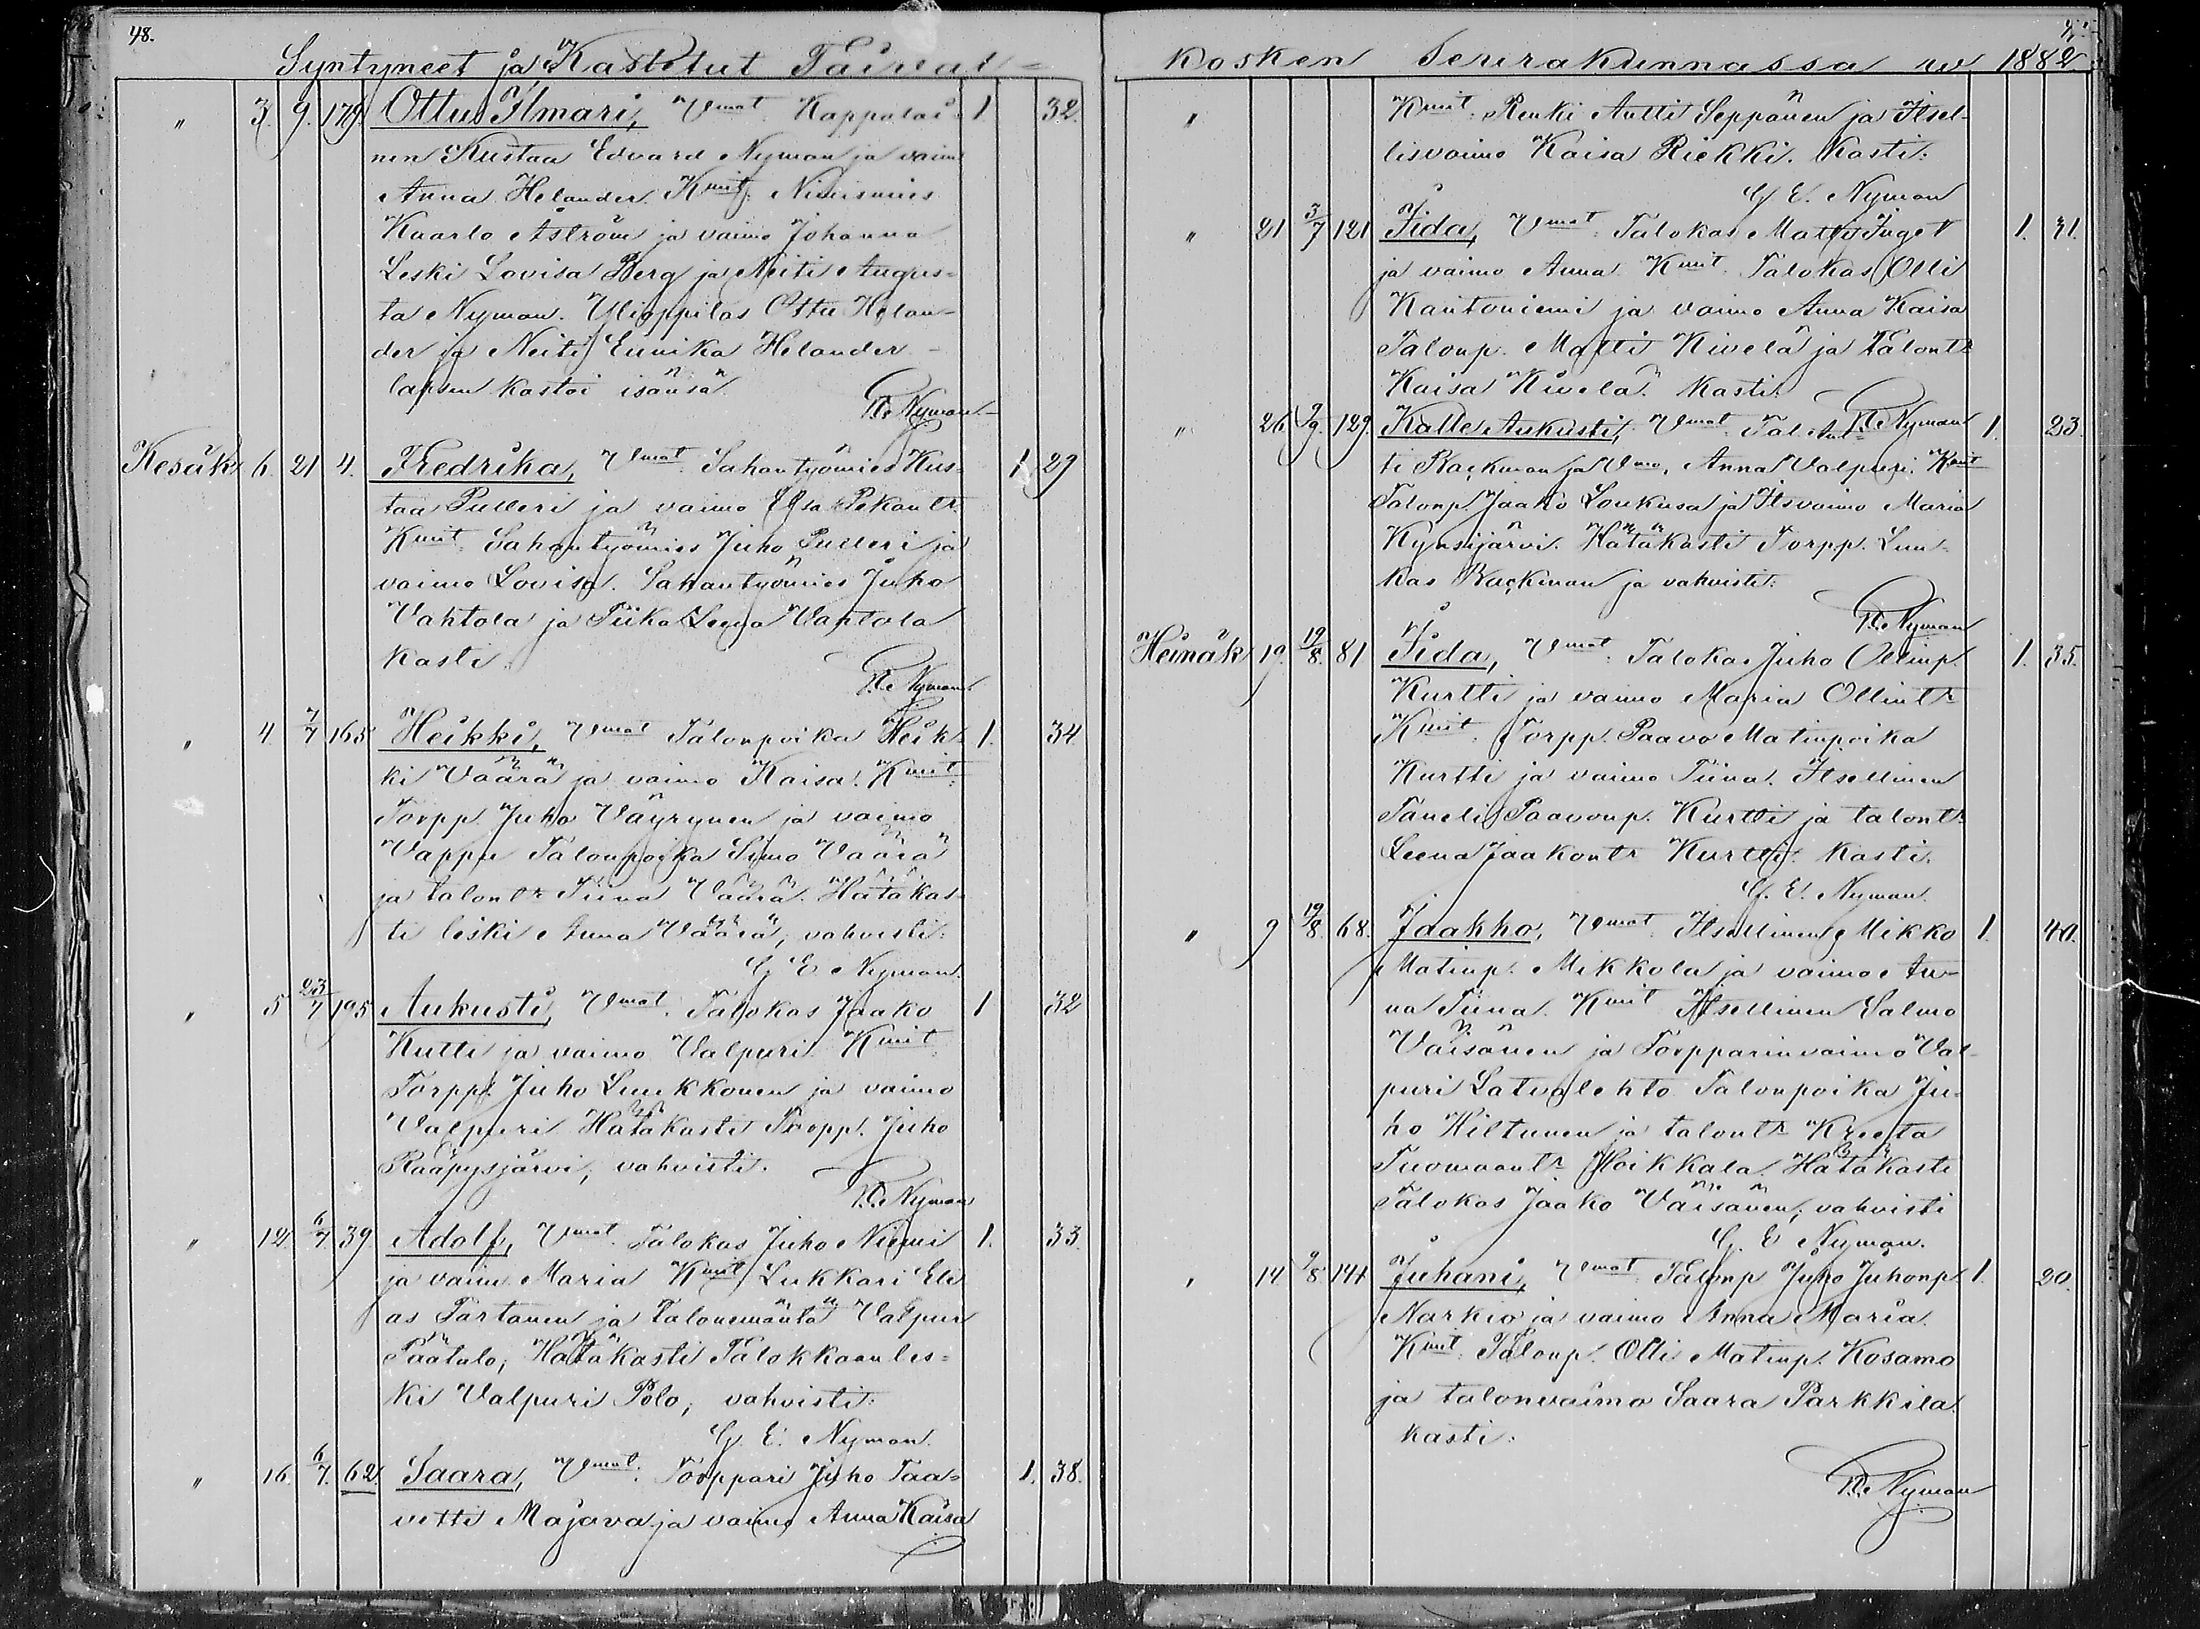 48.
Syntyneet ja Kastetut Taival-
" 3. 9. 179. Ottu Ilmari, Vmat. Kappalai- 1. 32.
nen Kustaa Edvard Nyman ja vaim
Anna Helander. Kmit. Nimismies
Kaarlo Åström ja vaimo Johanna
Leski Lovisa Berg ja Neiti Augus-
ta Nyman. Ylioppilas Ottu Helan-
der ja Neiti Eunika Helander -
lapsen kastoi isänsä.
G. E. Nyman
Kesäk 6. 21 4. Fredrika, Vmat. Sahantyömies Kus- 1. 29
taa Pulleri ja vaimo Elsa Pekantr.
Kmit. Sahantyömies Juho Pulleri ja
vaimo Lovisa. Sahantyömies Juho
Vahtola ja Piika Leena Vahtola
Kasti:
G. E. Nyman
" 4. 7/7 165 Heikki, Vmat Talonpoika Heik- 1. 34.
ki Väärä ja vaimo Kaisa. Kmit.
Torpp. Juho Väyrynen ja vaimo
Vappu Talonpoika Simo Väärä
ja talontr Tiina Väärä. Hätäkas-
ti leski Anna Väärä, vahvisti:
G E Nyman.
" 5 23/7 195 Aukusti, Vmat. Talokas Jaako 1 32
Kutti ja vaimo Valpuri Kmit.
Torpp. Juho Luukkonen ja vaimo
Valpuri Hätäkasti Torpp. Juho
Rääpysjärvi, vahvisti.
G. E. Nyman
" 12. 6/7. 39. Adolf, Vmat. Talokas Juho Niemi 1. 33.
ja vaim. Maria Kmit Lukkari Eli
as Partanen ja Talonemäntä Valpuri
Päätalo; Hätäkasti Talokkaanles-
ki Valpuri Polo; vahvisti:
G. E. Nyman.
" 16. 6/7. 62 Saara, Vmat. Torppari Juho Taa- 1. 38.
vetti Majava ja vaimo Anna Kaisa
kosken Seurakunnassa w 1882
" Kmit. Renki Antti Seppänen ja Itsel-
lisvaimo Kaisa Riekki. Kasti:
G E. Nyman
" 21 3/7 121 Iida, Vmat. Talokas Matti Inget 1. 31.
ja vaimo Anna Kmit. Talokas Olli
Kantoniemi ja vaimo Anna Kaisa
Talonp. Matti Kivelä ja Talontr
Kaisa Kivelä. Kasti:
G. E. Nyman
" 26 9/9. 129. Kalle Aukusti, Vmat. Tal. Ant- 1. 23.
ti Backman ja Vmo. Anna Valpuri. Kmit
Talonp. Jaako Loukusa ja Itsvaimo Maria
Kynsijärvi. Hätäkasti Torpp. Luu-
kas Backman ja vahvisti:
G. E. Nyman
Heinäk 19. 19/8. 81 Iida, Vmat. Talokas Juho Ollinp. 1. 35.
Kurtti ja vaimo Maria Ollintr
Kmit. Torpp. Paavo Matinpoika
Kurtti ja vaimo Tiina. Itsellinen
Taneli Paavonp. Kurtti ja talontr.
Leena Jaakontr Kurtti. Kasti.
G. E. Nyman.
" 9 19/8. 68. Jaakko, Vmat. Itsellinen Mikko 1. 40.
Matinp. Mikkola ja vaimo An-
na Tiina. Kmit Itsellinen Salmo
Väisänen ja Torpparinvaimo Val-
puri Latvalehto Talonpoika Ju-
ho Hiltunen ja talontr Kreeta
Tuomaantr Hoikkala. Hätäkasti
Talokas Jaako Väisänen; vahvisti
G. E Nyman.
" 14 9/8 144 Juhani, Vmat. Talonp Juho Juhonp. 1. 20.
Narkio ja vaimo Anna Maria.
Kmit. Talonp. Olli Matinp. Kosamo
ja talonvaimo Saara Parkkila.
kasti:
G. E. Nyman